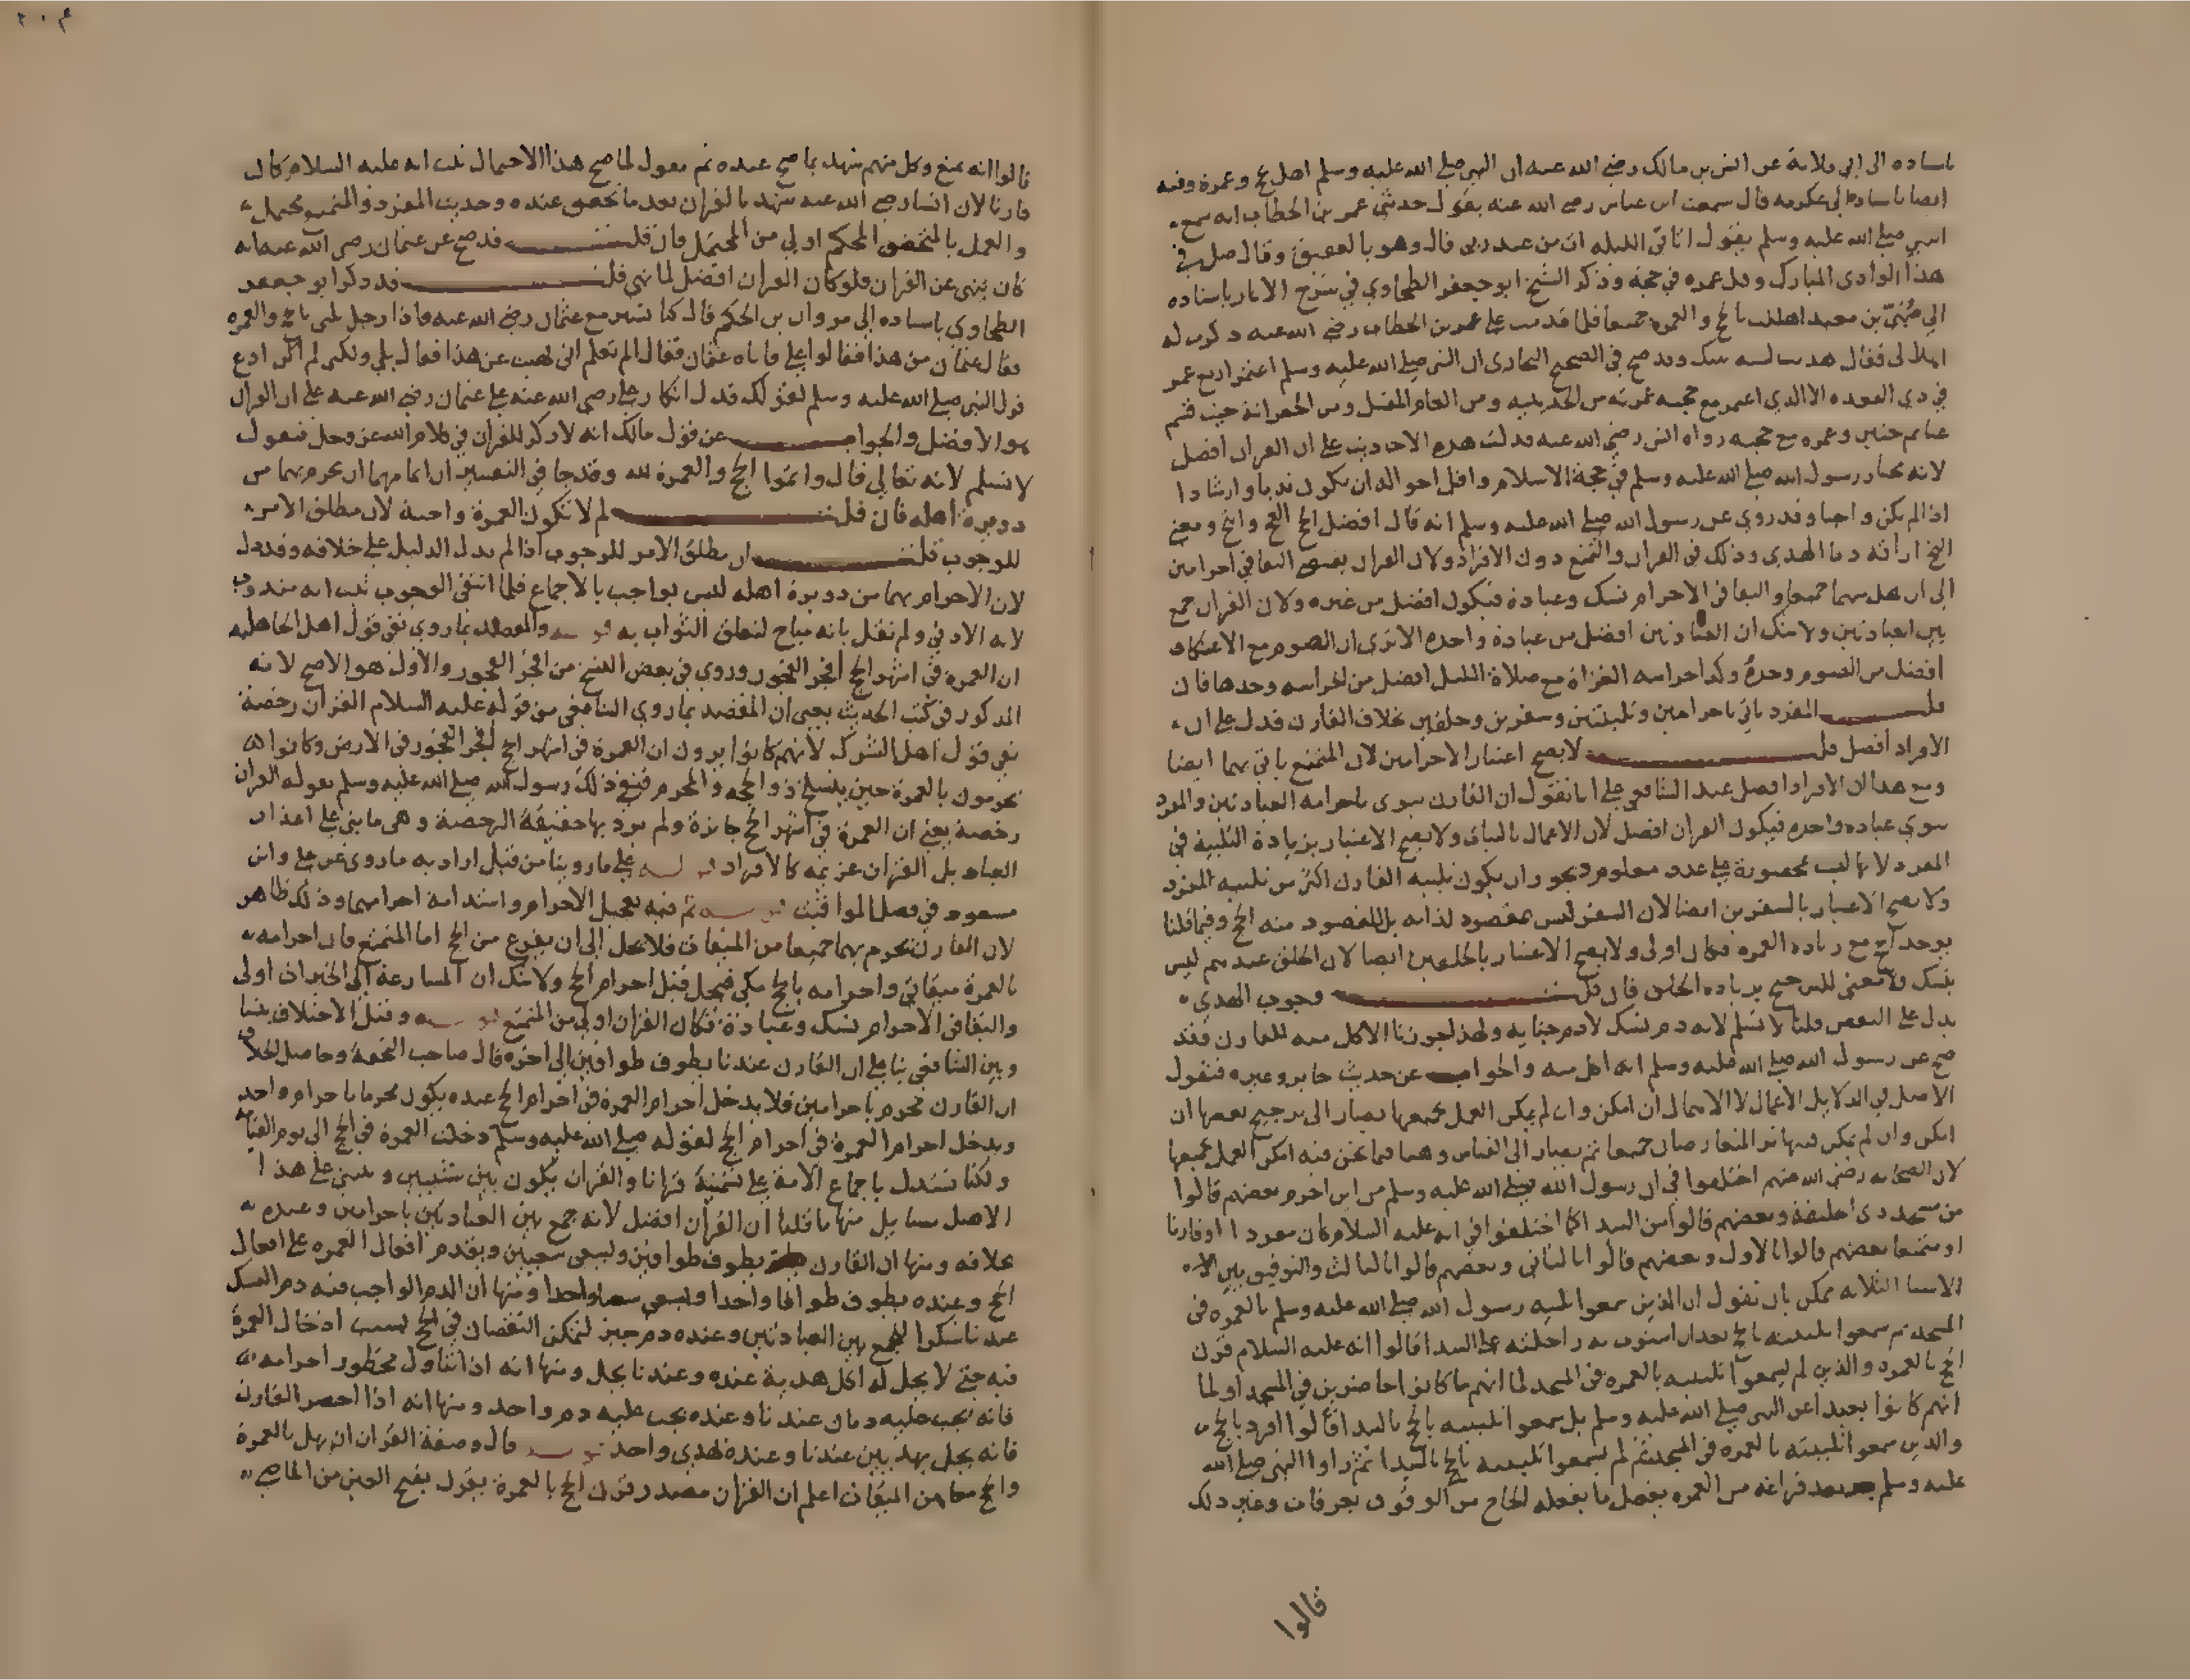 باسناده الى ابي قلابة عن انس بن مالك رضي الله عنه ان النبي صلى الله عليه وسلم اهل بحج وعمرة وفيه
ايضا باسناده الى عكرمه قال سمعت ابن عباس رضي الله عنه يقول حدثني عمر بن الخطاب انه سمع
النبي صلى الله عليه وسلم يقول اتاني الليله ات من عند ربي قال وهو بالعقيق وقال صل في
هذا الوادي المبارك وقل عمره في حجة وذكر الشيخ ابو جعفر الطحاوي في شرح الاثار باسناده
الى صُبَيّ بن معبد اهللت بالحج والعمرة جميعا فلما قدمت على عمر بن الخطاب رضي الله عنه ذكرت له
اهلالي فقال هديت لسنة نبيك وقد صح في الصحيح البخاري ان النبي صلى الله عليه وسلم اعتمر اربع عمر
في ذي القعده الا الذي اعتمر مع حجته عمرته من الحديبيه ومن العام المقبل ومن الجعرانة حيث قسم
غنائم حنين وعمره مع حجته رواه انس رضي الله عنه فدلت هذه الاحاديث على ان القران افضل
لانه مختار رسول الله صلى الله عليه وسلم في حجة الاسلام واقل احواله ان يكون ندبا وارشادا
اذا لم يكن واجبا وقد روي عن رسول الله صلى الله عليه وسلم انه قال افضل الحج العج والثج ومعنى
الثج اراقة دما الهدي وذلك في القران والتمتع دون الافراد ولان القران يقتضي البقا في احرامين
الى ان يحل منهما جميعا والبقا في الاحرام نسك وعبادة فيكون افضل من غيره ولان القران جمع
بين العبادتين ولا شك ان العبادتين افضل من عبادة واحده الا ترى ان الصوم مع الاعتكاف
افضل من الصوم وحدهُ وكذا حراسه الغزاة مع صلاة الليل افضل من الحراسه وحدها فان
قلت المفرد ياتي باحرامين وتلبيتين وسفرين وحلقين بخلاف القارن فدل على ان
الافراد افضل قلت لا يصح اعتبار الاحرامين لان المتمتع ياتي بهما ايضا
ومع هذا كان الافراد افضل عند الشافعي على انا نقول ان القارن نوى باحرامه العبادتين والمفرد
نوى عباده واحده فيكون القران افضل لان الاعمال بالنيات ولا يصح الاعتبار بزيادة التلبية في
المفرد لانها ليست محصورة على عدد معلوم فيجوز ان يكون تلبيه القارن اكثر من تلبيه المفرد
ولا يصح الاعتبار بالسفرين ايضا لان السفر ليس بمقصود لذاته بل المقصود منه الحج وفيما قلنا
يوجد الحج مع زياده العمره فكان اولى ولا يصح الاعتبار بالحلقين ايضا لان الحلق عندهم ليس
بنسك ولا معنى للترجيح بزياده الحلق فان قلت وجوب الهدي
يدل على النقص قلنا لا نسلم لانه دم نسك لا دم جنايه ولهذا جوزنا الاكل منه للقارن فقد
صح عن رسول الله صلى الله عليه وسلم انه اكل منه والجواب عن حديث جابر وغيره فنقول
الاصل في الدلايل الاعمال لا الاهمال ان امكن وان لم يمكن العمل بجميعها يصار الى ترجيح بعضها ان
امكن وان لم يمكن فيها تر المتعارضان جميعا ثم يصار الى القياس وهنا فيما نحن فيه امكن العمل بجميعها
لان الصحابه رضي الله عنهم اختلفوا في ان رسول الله صلى الله عليه وسلم من اين احرم بعضهم قالوا
من مسجد ذي الحليفة وبعضهم قالوا من البيدا كما اختلفوا في انه عليه السلام كان مفردا او قارنا
او متمتعا بعضهم قالوا بالاول وبعضهم قالوا بالثاني وبعضهم قالوا بالثالث والتوفيق بين الا
الاشيا الثلاثه ممكن بان نقول ان الذين سمعوا تلبيه رسول الله صلى الله عليه وسلم بالعمره في
المسجد ثم سمعوا تلبيته بالحج بعد ان استوت به راحلته على البيدا قالوا انه عليه السلام قرن
الحج بالعمره والذين لم يسمعوا تلبيته بالعمره في المسجد لما انهم ما كانوا حاضرين في المسجد او لما
انهم كانوا بعيدا عن النبي صلى الله عليه وسلم بل سمعوا تلبيته بالحج بالبيدا قالوا افرد بالحج
والذين سمعوا تلبيته بالعمره في المسجد ثم لم يسمعوا تلبيته بالحج بالبيدا ثم راوا النبي صلى الله
عليه وسلم بعد فراغه من العمره يفعل ما يفعله الحاج من الوقوف بعرفات وغير ذلك
قالوا
٢٠٤
قالوا انه تمتع وكل منهم شهد بما صح عنده ثم نقول لما صح هذا الاحتمال ثبت انه عليه السلام كان
قارنا لان انسا رضي الله عنه شهد بالقران بعد ما تحقق عنده وحديث المفرد والمتمتع محتمل
والعمل بالمتحقق المحكم اولي من المحتمل فان قلت قد صح عن عثمان رضي الله عنه انه
كان ينهى عن القران فلو كان القران افضل لما نهى قلت قد ذكر ابو جعفر
الطحاوي باسناده الى مروان بن الحكم قال كنا نسير مع عثمان رضي الله عنه فاذا رجل يلبي بالحج والعمره
فقال عثمان من هذا فقالوا علي فاتاه عثمان فقال الم تعلم اني نهيت عن هذا فقال بلى ولكن لم اكن ادع
قول النبي صلى الله عليه وسلم لقولك فدل انكار علي رضي الله عنه على عثمان رضي الله عنه على ان القران
هو الافضل والجواب عن قول مالك انه لا ذكر للقران في كلام الله عز وجل فنقول
لا نسلم لانه تعالي قال واتموا الحج والعمرة لله وقد جا في التفسير ان اتمامهما ان يحرم بهما من
دويرة اهله فان قلت لم لا تكون العمرة واجبة لان مطلق الامر
للوجوب قلت ان مطلق الامر للوجوب اذا لم يدل الدليل على خلافه وقد دل
لان الاحرام بهما من دويرة اهله ليس بواجب بالاجماع فلما انتفى الوجوب ثبت انه مندوب
لانه الادنى ولم نقل بانه مباح لتعلق الثواب به قوله والمقصد بما روي نفي قول اهل الجاهليه
ان العمرة في اشهر الحج افجر الفجور وروي في بعض النسخ من افجر الفجور والاول هو الاصح لانه
المذكور في كتب الحديث يعني ان المقصد بما روي الشافعي من قوله عليه السلام القران رخصة
نفي قول اهل الشرك لانهم كانوا يرون ان العمرة في اشهر الحج افجر الفجور في الارض وكانوا
يحرمون بالعمرة حين ينسلخ ذو الحجه والمحرم فنفى ذلك رسول الله صلى الله عليه وسلم بقوله القران
رخصة يعني ان العمرة في اشهر الحج جائزة ولم يرد بها حقيقة الرخصة وهي ما بني على اعذار
العباد بل القران عزيمه كالافراد قوله على ما روينا من قبل اراد به ما روي عن علي وابن
مسعود في فصل المواقيت قوله ثم فيه تعجيل الاحرام واستدامة احرامهما وذلك ظاهر
لان القارن يحرم بهما جميعا من الميقات فلا يحل الى ان يفرغ من الحج اما المتمتع فان احرامه
بالعمرة ميقاتي واحرامه بالحج مكي فيحل قبل احرام الحج ولا شك ان المسارعة الى الخيرات اولى
والبقا في الاحرام نسك وعبادة فكان القران اولى من التمتع قوله وقيل الاختلاف بيننا
وبين الشافعي بنا على ان القارن عندنا يطوف طوافين الى اخره قال صاحب التحفة وحاصل الخلاف
ان القارن محرم باحرامين فلا يدخل احرام العمرة في احرام الحج عنده يكون محرما باحرام واحد
ويدخل احرام العمرة في احرام الحج لقوله صلى الله عليه وسلم دخلت العمرة في الحج الى يوم القيامة
ولكنا نستدل باجماع الامة على تسمية قرانا والقران يكون بين شيئين ويبتني على هذا
الاصل مسايل منها ما قلنا ان القران افضل لانه جمع بين العبادتين باحرامين وعنده
بخلافه ومنها ان القارن يطوف طوافين ويسعى سعيين ويقدم افعال العمره على افعال
الحج وعنده يطوف طوافا واحدا ويسعى سعيا واحدا ومنها ان الدم الواجب فيه دم النسك
عندنا شكرا للجمع بين العبادتين وعنده دم جبر لتمكن النقصان في الحج بسبب ادخال العمرة
فيه حتى لا يحل له اكل هديه عنده وعندنا يحل ومنها انه اذا تناول محظور احرامه
فانه يجب عليه دمان عندنا وعنده يجب عليه دم واحد ومنها انه اذا احصر القارن
فانه يحل بهديين عندنا وعنده بهدي واحد قوله قال وصفة القران ان يهل بالعمرة
والحج معا من الميقات اعلم ان القران مصدر قرن الحج بالعمرة يقرن بفتح العين من الماضي